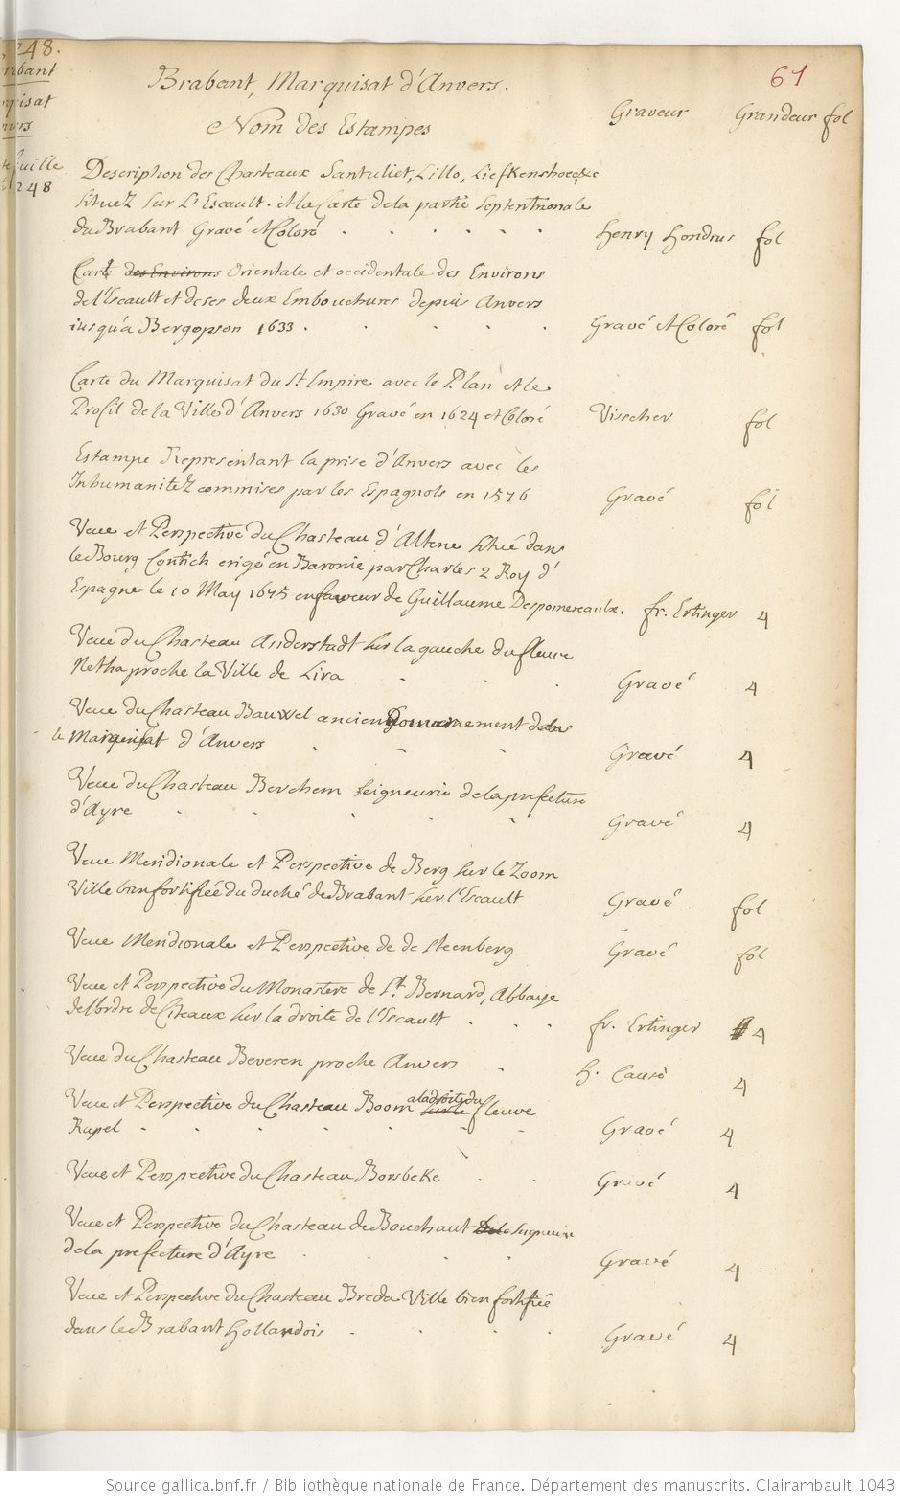 248.
Brabant, Marquisat d'Anvers.
61
Nom des Estampes
Graveur
Grandeur fol
248
Description des Chasteaux Santuliet, Lillo, Liefkenshoecke
situez sur L'Escault. et la Carte de la partie septentrionale
du Brabant Gravé et Coloré . . . . . Henry Hondius fol
Carte des Environs Orientale et occidentale des Environs
de l'Escault et de ses deux Embouchures depuis Anvers
jusqu'a Bergopson 1633 . . . . . Gravé et Coloré fol
Carte du Marquisat du St Empire avec le Plan et le
Profil de la Ville d'Anvers 1630 Gravé en 1624 et Coloré Visscher fol
Estampe Representant la prise d'Anvers avec les
Inhumanitez commises par les Espagnols en 1576 Gravé fol
Veue et Perspective du Chasteau d'Altene situé dans
le Bourg Contich erigé en Baronie par Charles 2 Roy d'
Espagne le 10 May 1675 en faveur de Guillaume Despomereaulx. fr. Ertinger 4
Veue du Chasteau Anderstadt sur la gauche du fleuve
Netha proche la Ville de Lira . . . Gravé 4
Veue du Chasteau Bauxel ancien
le Marquisat d'Anvers . . . Gravé 4
Veue du Chasteau Berchem seigneurie de la prefecture
d'Ayre . . . . . Gravé 4
Veue Meridionale et Perspective de Berg sur le Zoom
Ville bien fortifiée du duché de Brabant sur l'Escault Gravé fol
Veue Meridionale et Perspective de de Steenberg Gravé fol
Veue et Perspective du Monastere de St. Bernard, Abbaye
de l'ordre de Citeaux sur la droite de l'Escault . . . fr. Ertinger 4
Veue du Chasteau Beveren proche Anvers . H. Causé 4
Veue et Perspective du Chasteau Boom a la droite du fleuve
Rupel . . . . . . . Gravé 4
Veue et Perspective du Chasteau Borsbeke . . Gravé 4
Veue et Perspective du Chasteau de Bouchaut seigneurie
de la prefecture d'Ayre . . . . Gravé 4
Veue et Perspective du Chasteau Breda Ville bien fortifiée
dans le Brabant Hollandois . . . . Gravé 4
Source gallica.bnf.fr / Bibliothèque nationale de France. Département des manuscrits. Clairambault 1043